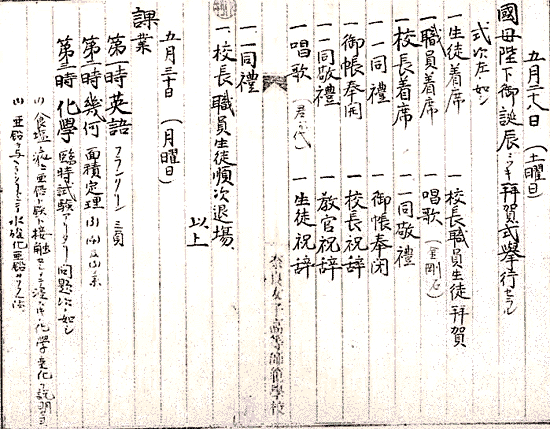 五月二十八日（土曜日）
國母陛下御誕辰ニツキ拜賀式擧行セラル
式次左ノ如シ
一生徒着席
一職員着席
一校長着席
一一同禮
一御帳奉開
一一同敬禮
一唱歌（君が代）
一校長職員生徒拜賀
一唱歌（金剛石）
一一同敬禮
一御帳奉閉
一校長祝辞
一教官祝辞
一生徒祝辞
一一同禮
一校長職員生徒順次退場
以上
奈良女子高等師範學校
五月三十日（月曜日）
課業
第一時英語 フランクリン 三頁
第二時幾何 面積定理
第三時化學 臨時試験アリタリ 問題次ノ如シ